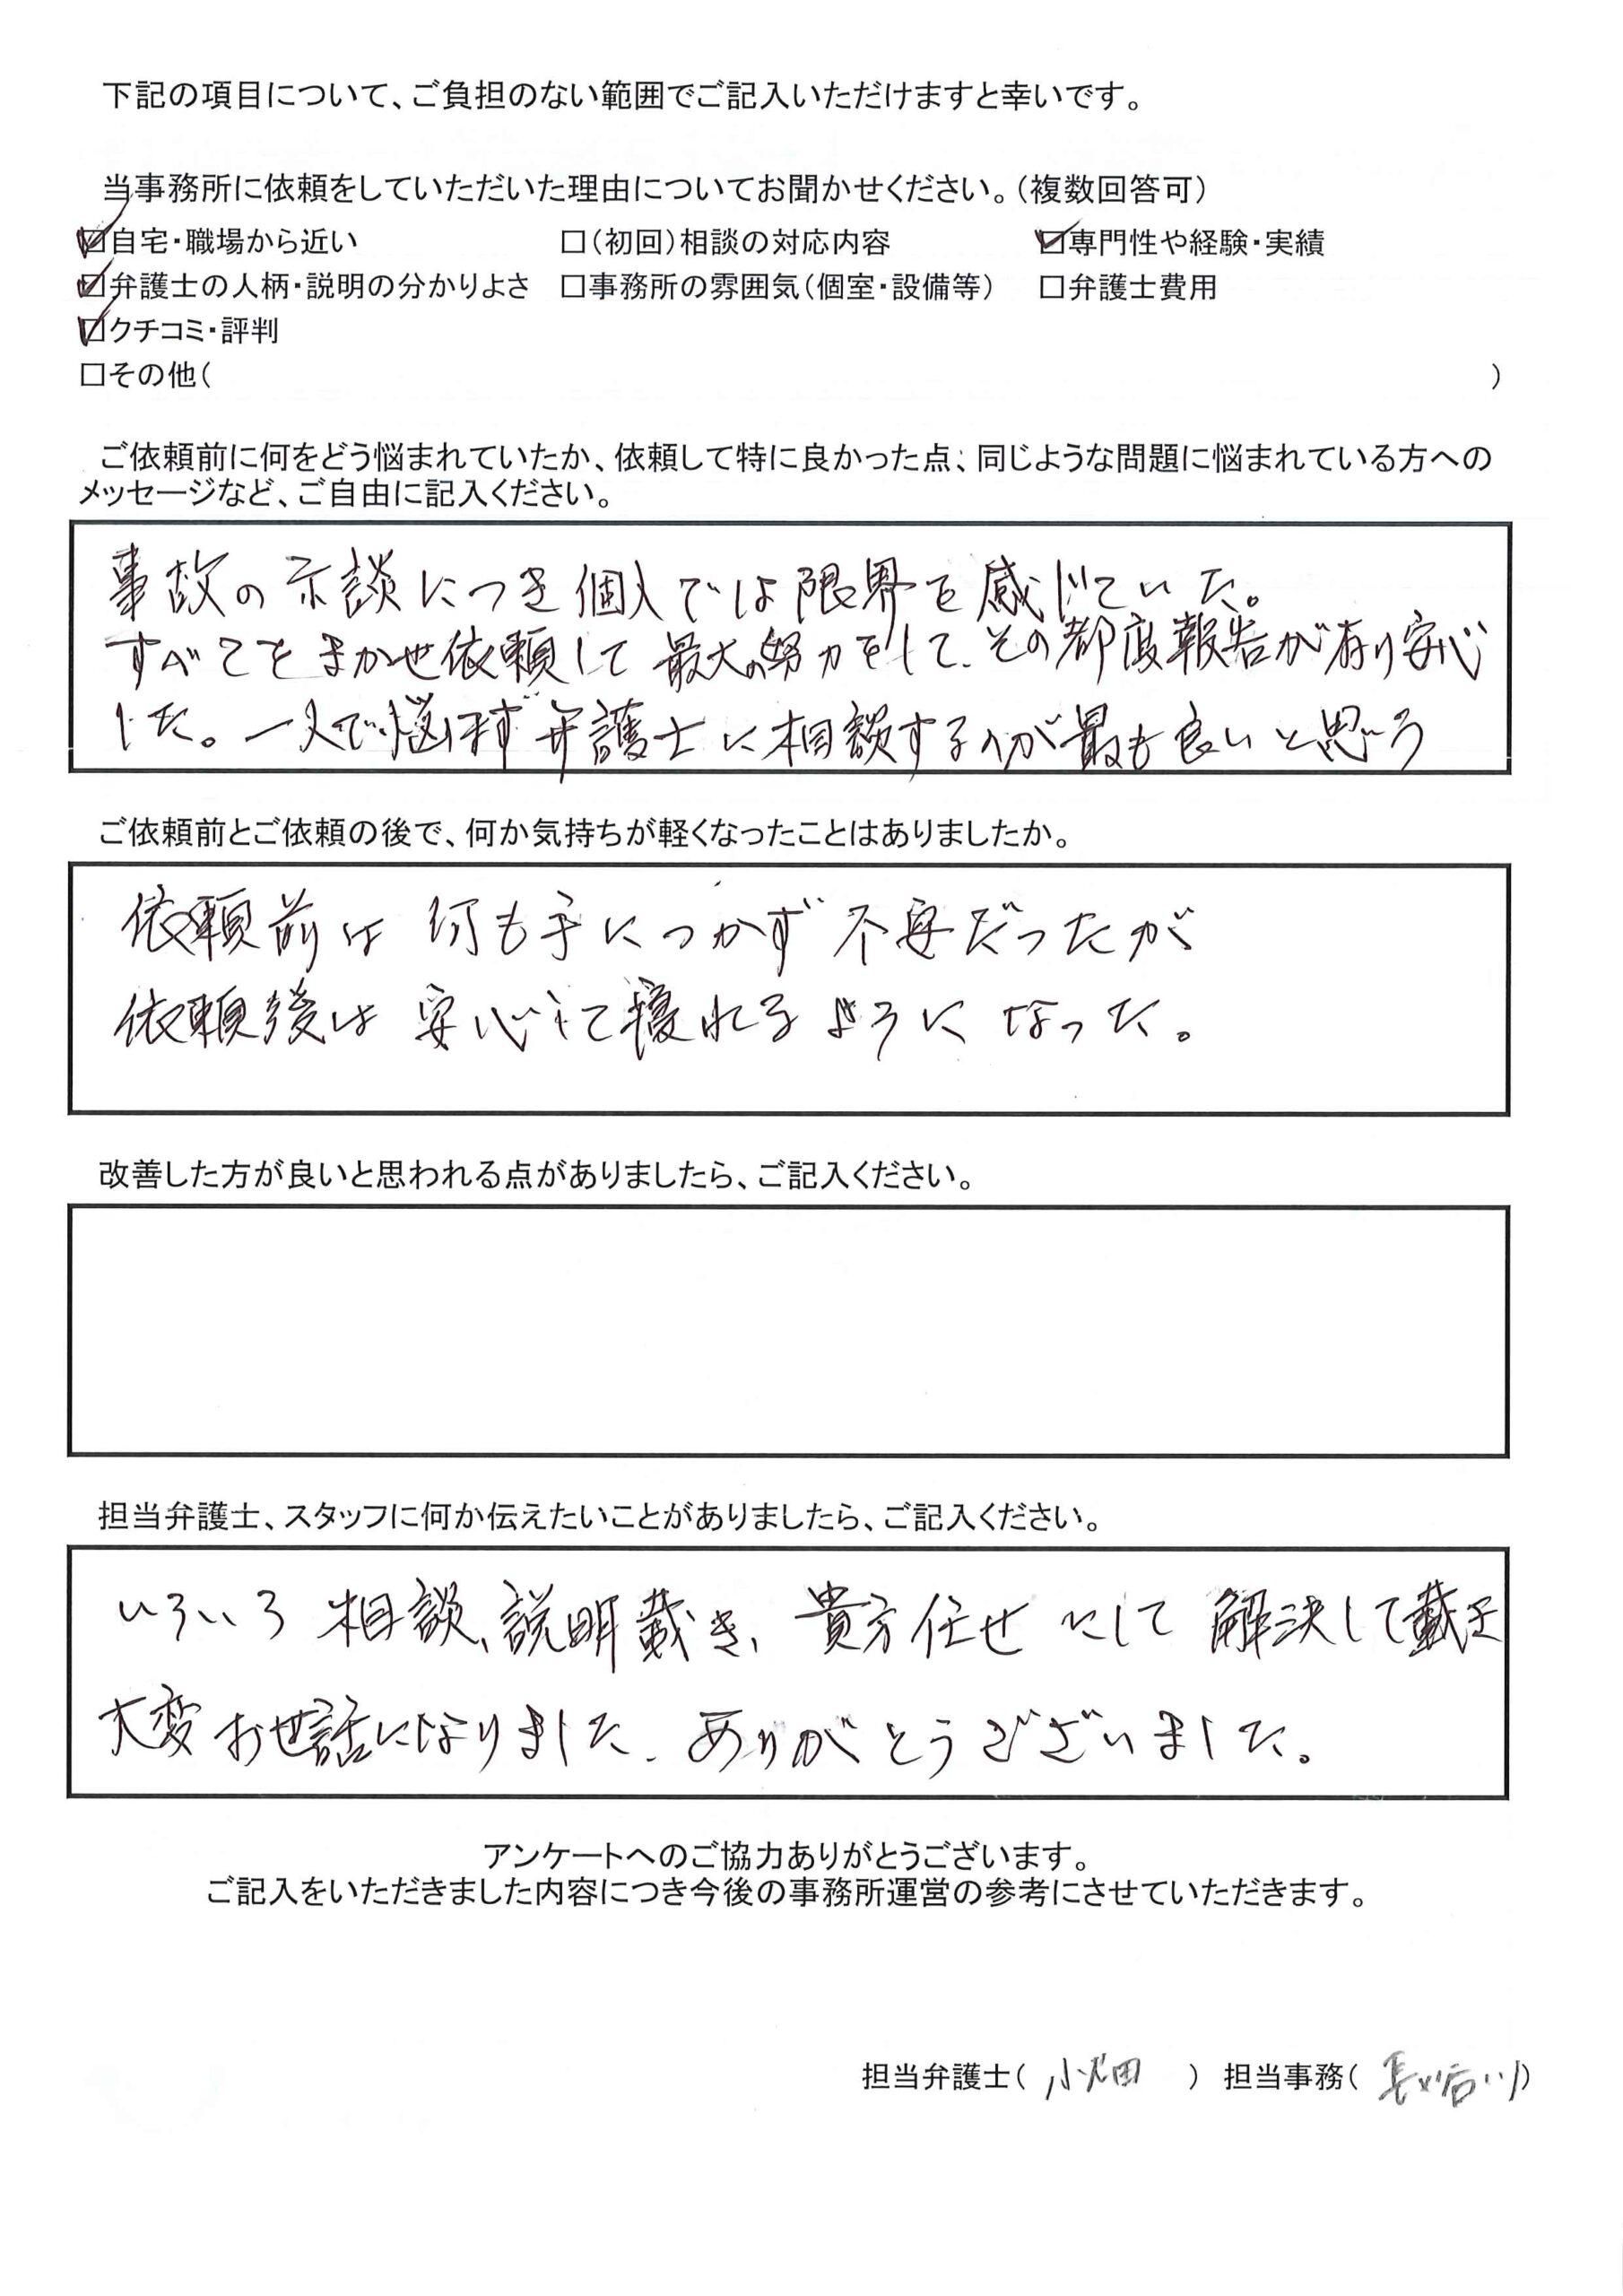 下記の項目について、ご負担のない範囲でご記入いただけますと幸いです。
当事務所に依頼をしていただいた理由についてお聞かせください。(複数回答可)
☑自宅・職場から近い　□(初回)相談の対応内容　☑専門性や経験・実績
☑弁護士の人柄・説明の分かりよさ　□事務所の雰囲気(個室・設備等)　□弁護士費用
☑クチコミ・評判
□その他(　)
ご依頼前に何をどう悩まれていたか、依頼して特に良かった点、同じような問題に悩まれている方への
メッセージなど、ご自由に記入ください。
事故の示談につき個人では限界を感じていた。
すべてをまかせ依頼して最大の努力をして、その都度報告が有り安心
した。一人で悩まず弁護士に相談するのが最も良いと思う
ご依頼前とご依頼の後で、何か気持ちが軽くなったことはありましたか。
依頼前は何も手につかず不安だったが
依頼後は安心して寝れるようになった。
改善した方が良いと思われる点がありましたら、ご記入ください。
担当弁護士、スタッフに何か伝えたいことがありましたら、ご記入ください。
いろいろ相談、説明戴き、貴方任せにして解決して戴き
大変お世話になりました、ありがとうございました。
アンケートへのご協力ありがとうございます。
ご記入をいただきました内容につき今後の事務所運営の参考にさせていただきます。
担当弁護士(小畑)　担当事務(長谷川)